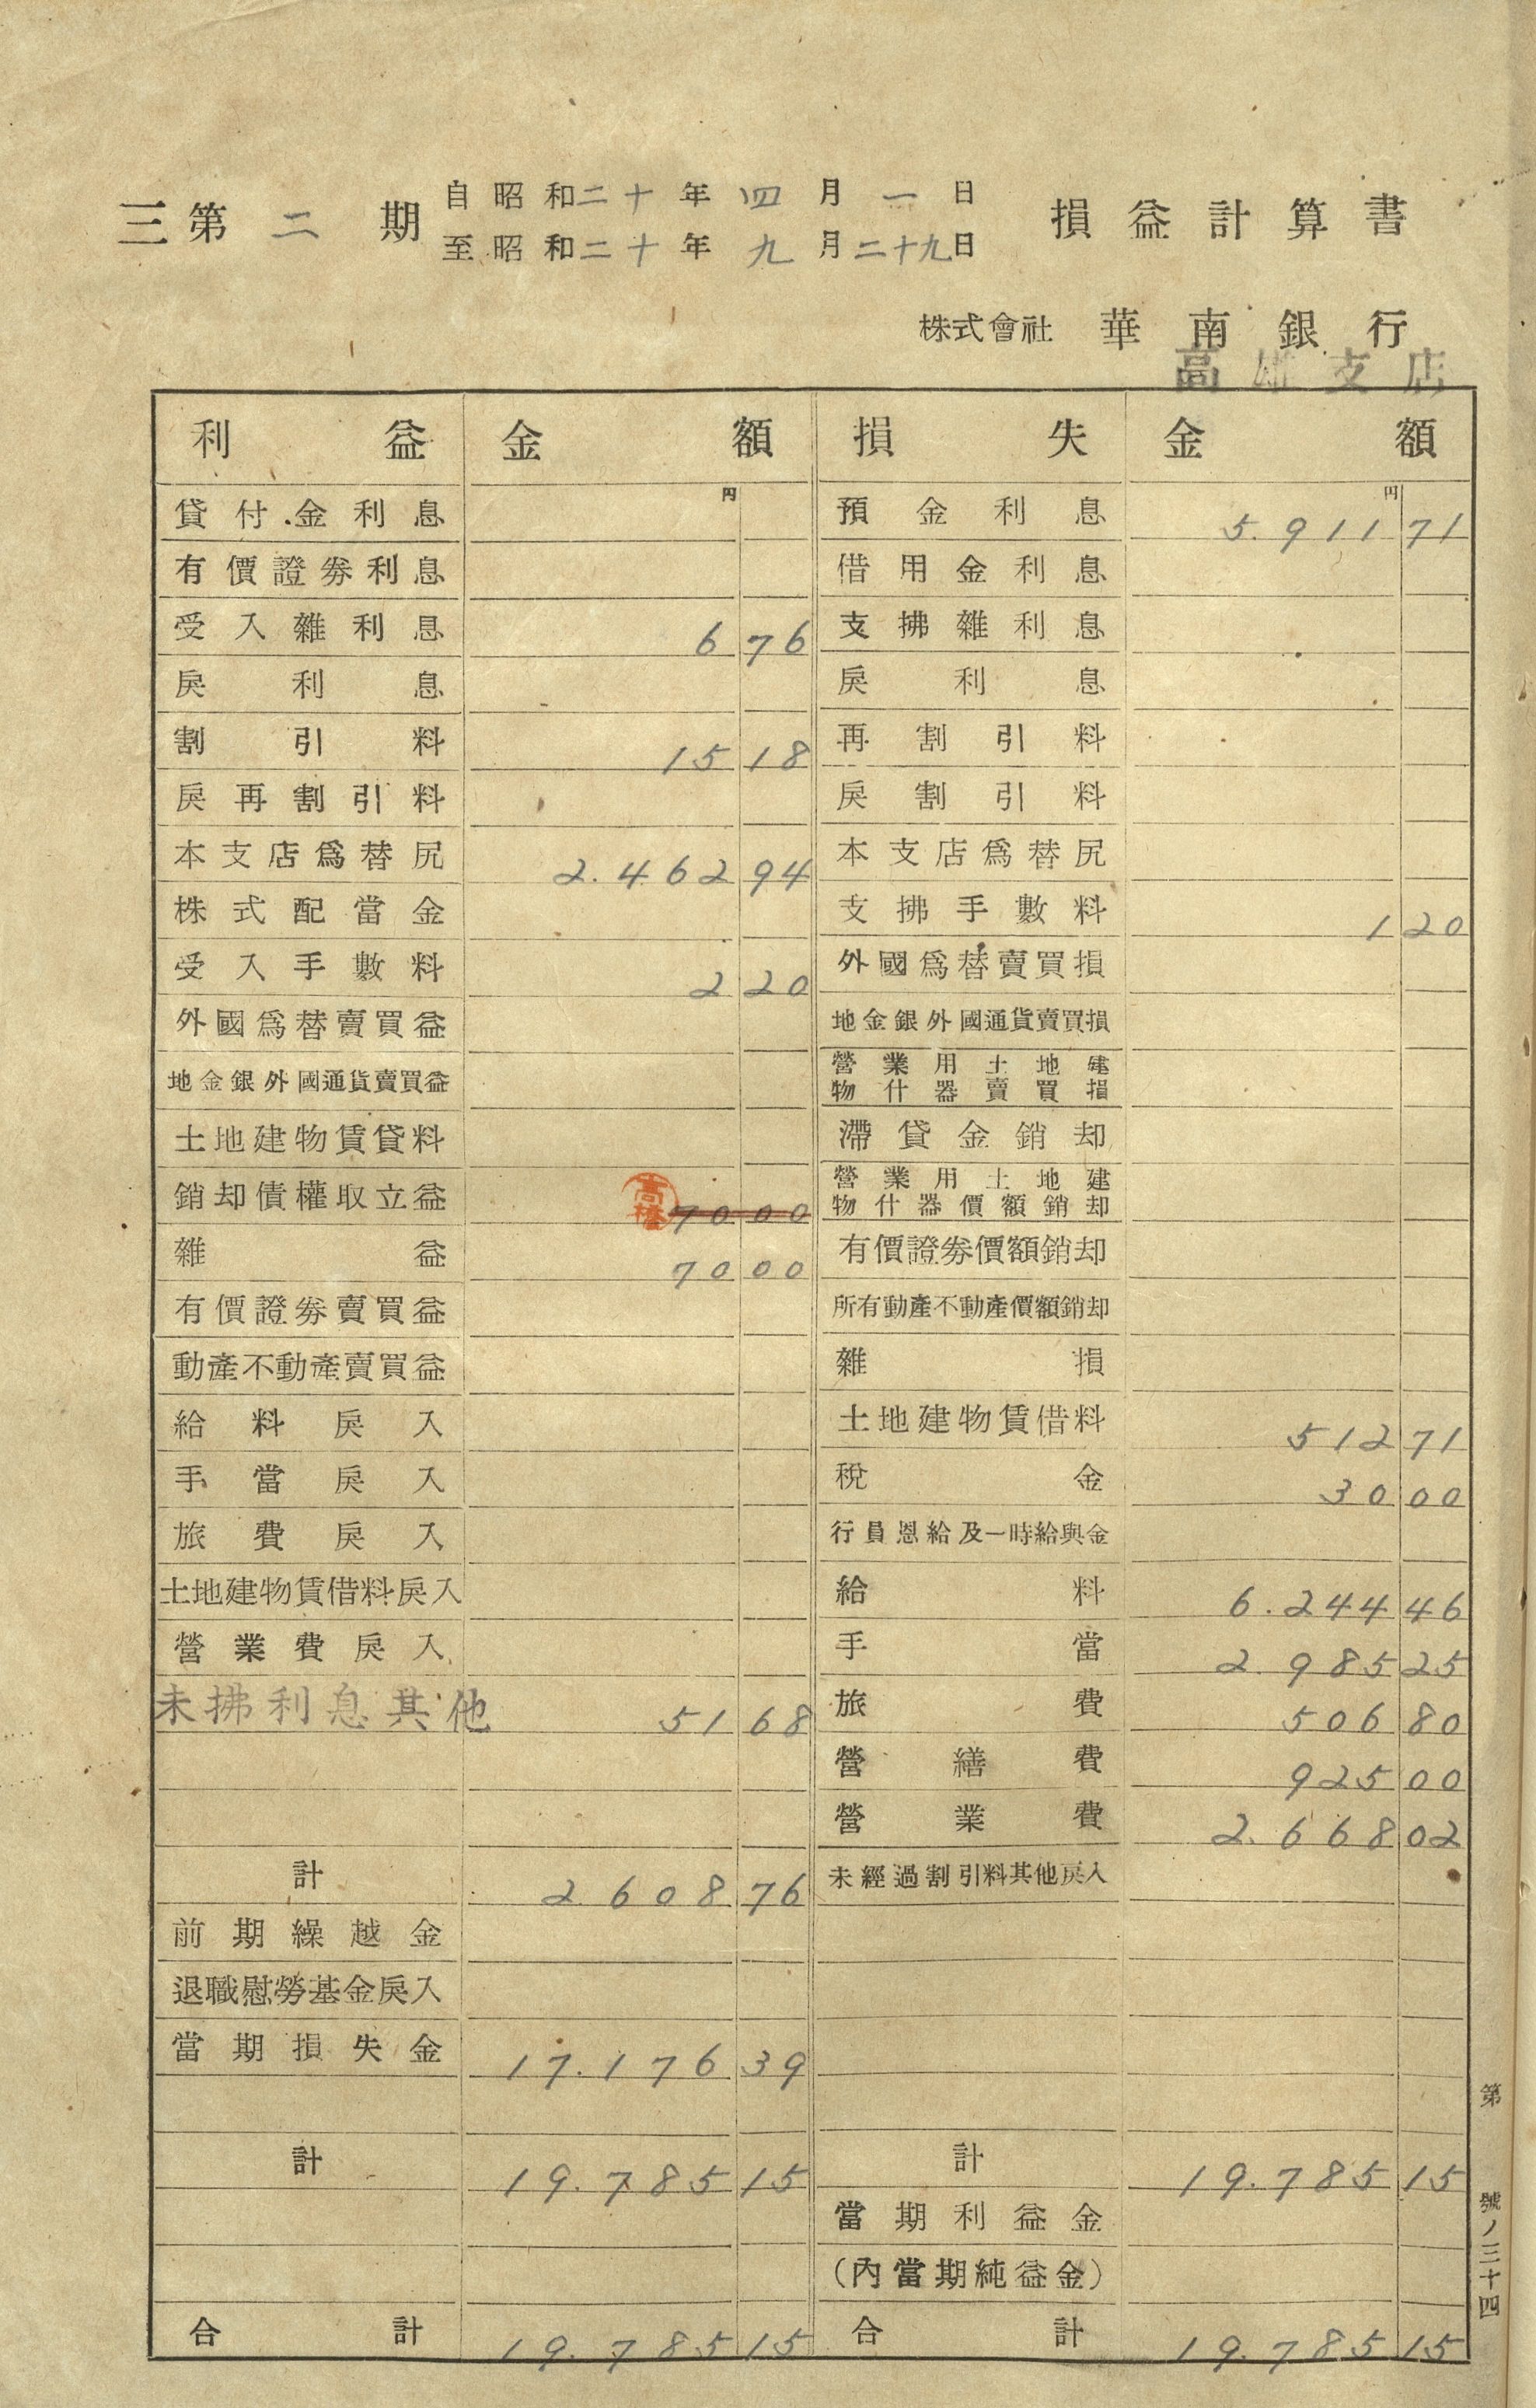 三第二期 自昭和二十年四月一日 損益計算書
至昭和二十年九月二十九日
株式會社 華南銀行
高雄支店
利益 金額 損失 金額
円 円
貸付金利息 預金利息 5.911 71
有價證券利息 借用金利息
受入雜利息 6 76 支拂雜利息
戾利息 戾利息
割引料 15 18 再割引料
戾再割引料 戾割引料
本支店爲替尻 2.462 94 本支店爲替尻
株式配當金 支拂手數料 1 20
受入手數料 2 20 外國爲替賣買損
外國爲替賣買益 地金銀外國通貨賣買損
地金銀外國通貨賣買益 營業用土地建物什器賣買損
土地建物賃貸料 滯貸金銷却
銷却債權取立益 高橋 70 00 營業用土地建物什器價額銷却
雜益 70 00 有價證券價額銷却
有價證券賣買益 所有動產不動產價額銷却
動產不動產賣買益 雜損
給料戾入 土地建物賃借料 512 71
手當戾入 稅金 30 00
旅費戾入 行員恩給及一時給與金
土地建物賃借料戾入 給料 6.244 46
營業費戾入 手當 2.985 25
未拂利息其他 51 68 旅費 506 80
營繕費 925 00
營業費 2.668 02
計 2 608 76 未經過割引料其他戾入
前期繰越金
退職慰勞基金戾入
當期損失金 17.176 39
計 19.785 15 計 19.785 15
當期利益金
(內當期純益金)
合計 19.785 15 合計 19.785 15
第 號ノ三十四